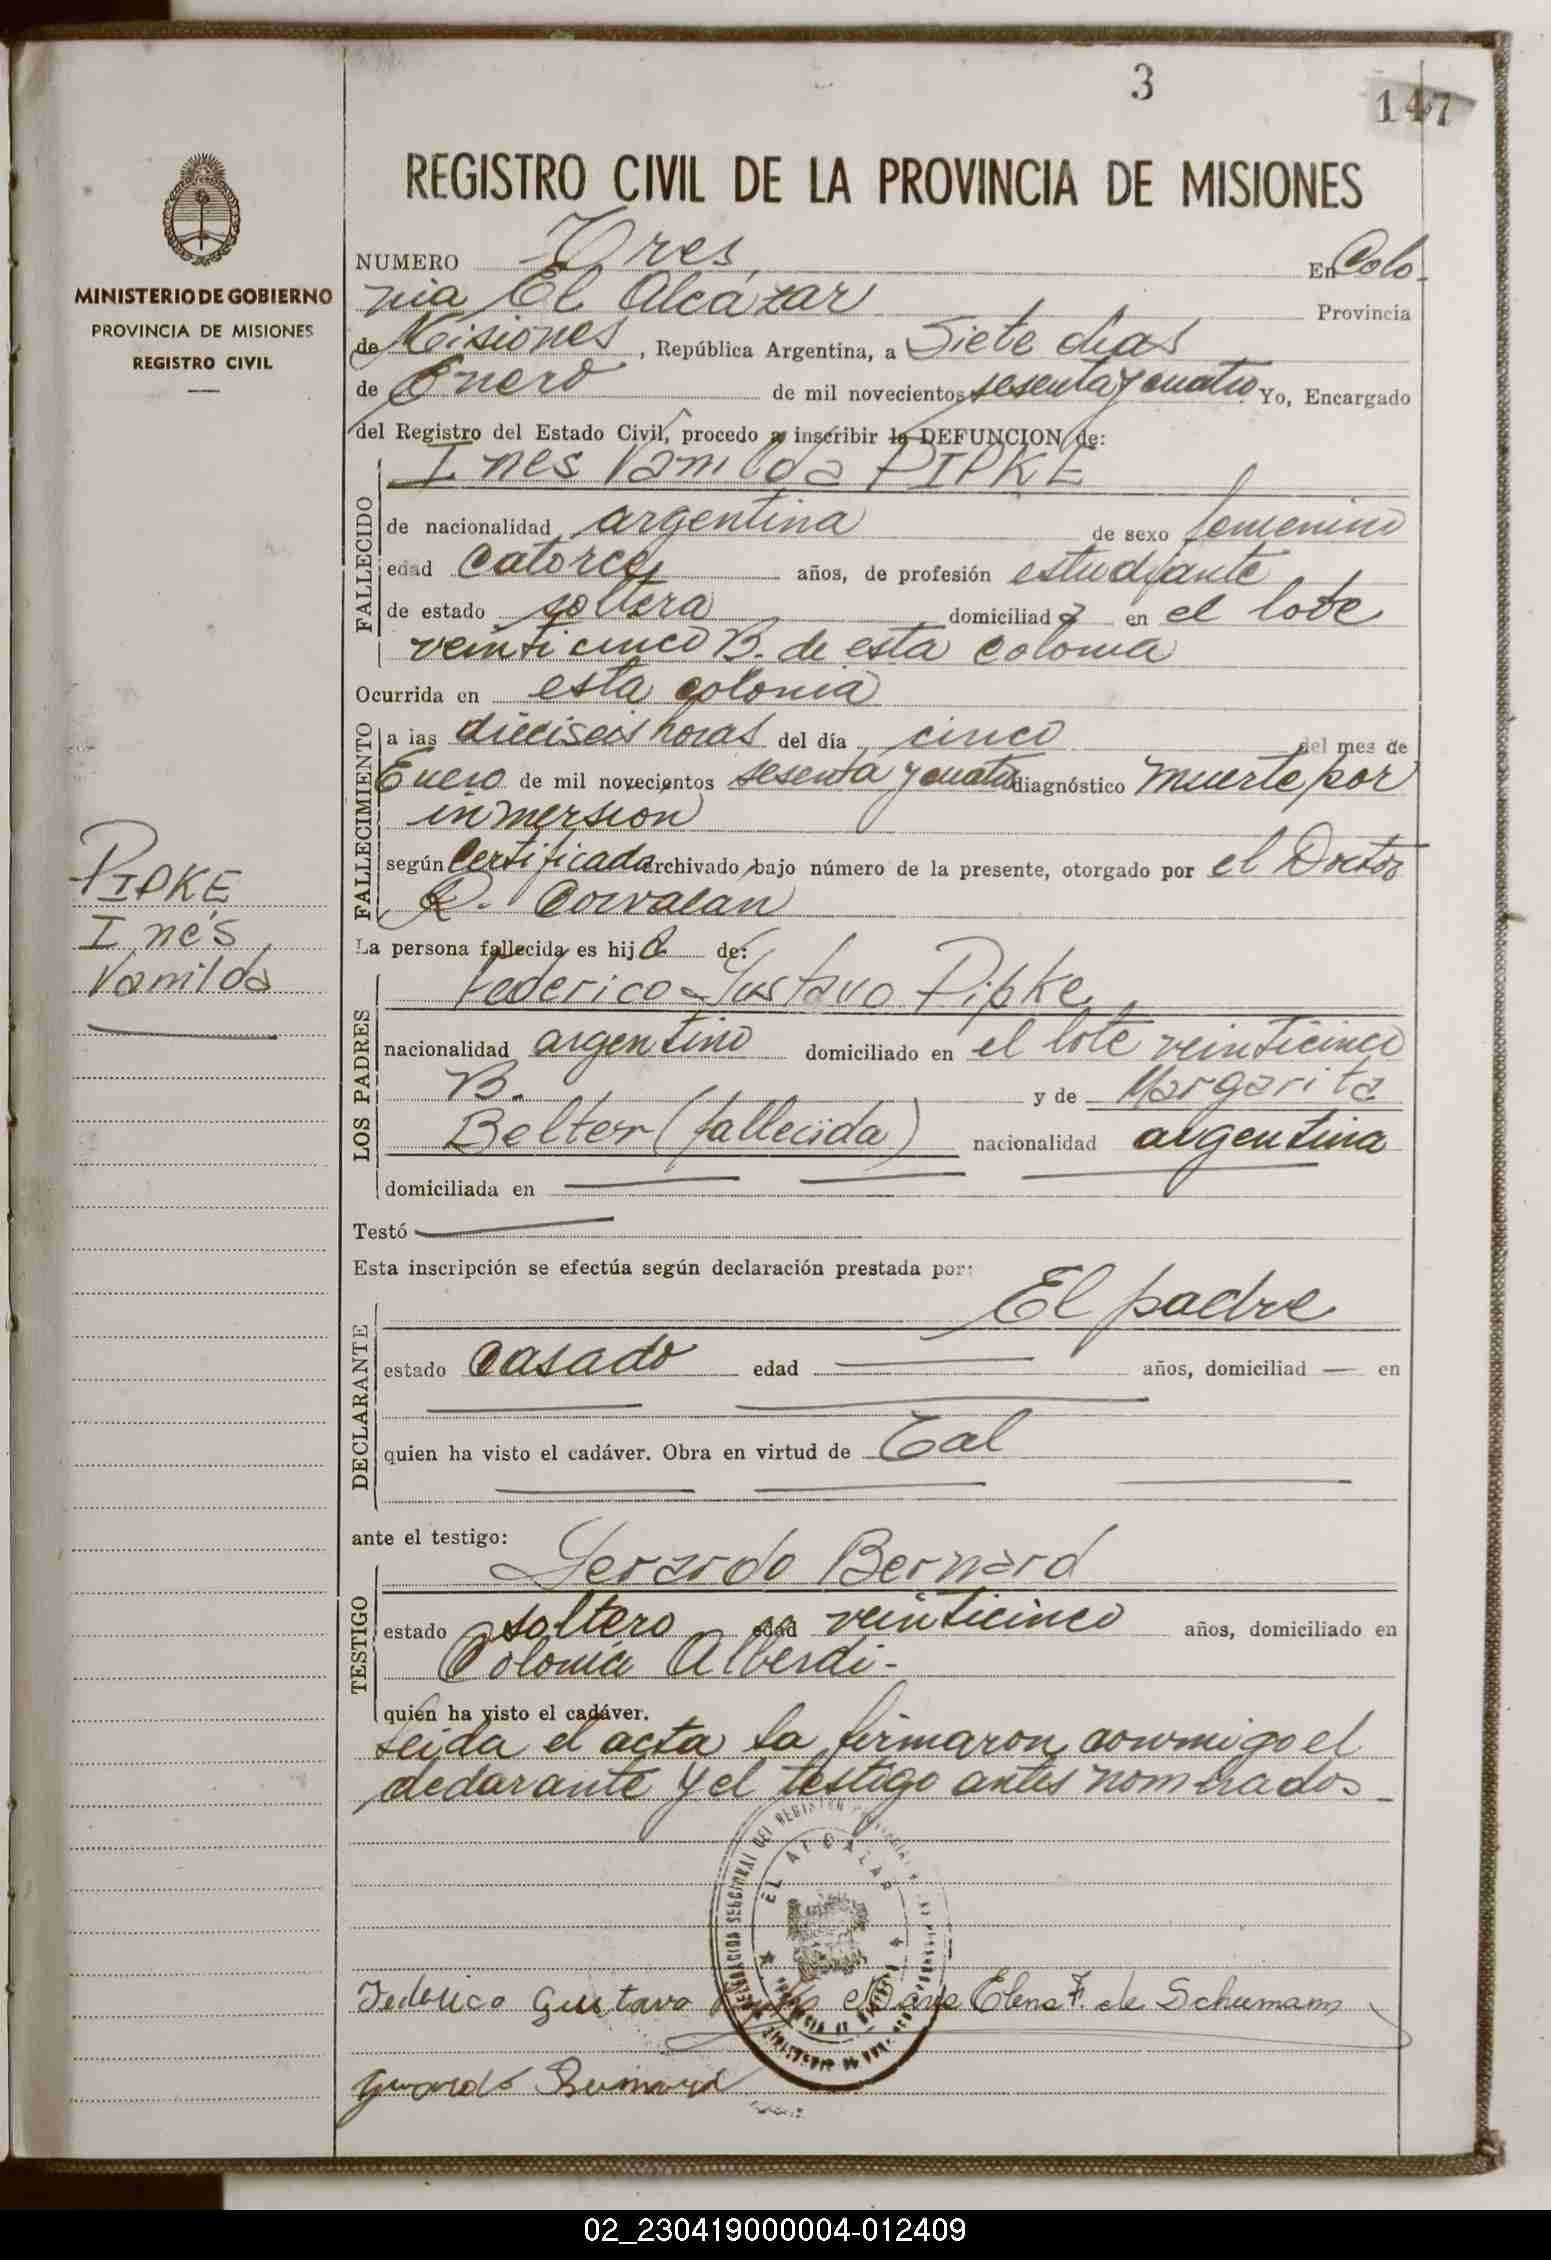 3
147
REGISTRO CIVIL DE LA PROVINCIA DE MISIONES
MINISTERIO DE GOBIERNO
PROVINCIA DE MISIONES
REGISTRO CIVIL
NUMERO Tres En Colo-
nia El Alcázar Provincia
de Misiones, República Argentina, a Siete días
de Enero de mil novecientos sesenta y cuatro Yo, Encargado
del Registro del Estado Civil, procedo a inscribir la DEFUNCION de:
Ines Vanilda PIPKE
FALLECIDO
de nacionalidad argentina de sexo femenino
edad catorce años, de profesión estudiante
de estado soltera domiciliada en el lote
veinticinco B. de esta colonia
Ocurrida en esta colonia
FALLECIMIENTO
a las dieciseis horas del día cinco del mes de
Enero de mil novecientos sesenta y cuatro diagnóstico muerte por
inmersion
según Certificado archivado bajo número de la presente, otorgado por el Doctor
R. Corvalan
PIPKE
Inés
Vanilda
La persona fallecida es hija de:
LOS PADRES
Federico Gustavo Pipke
nacionalidad argentino domiciliado en el lote veinticinco
B. y de Margarita
Belter (fallecida) nacionalidad argentina
domiciliada en
Testó
Esta inscripción se efectúa según declaración prestada por:
El padre
DECLARANTE
estado casado edad años, domiciliad en
quien ha visto el cadáver. Obra en virtud de Tal
ante el testigo:
Gerardo Bernard
TESTIGO
estado soltero edad veinticinco años, domiciliado en
Colonia Alberdi-
quien ha visto el cadáver.
Leida el acta la firmaron conmigo el
declarante y el testigo antes nombrados
EL ALCAZAR
Federico Gustavo Elena F. de Schumann
Gerardo Bernard
02_230419000004-012409